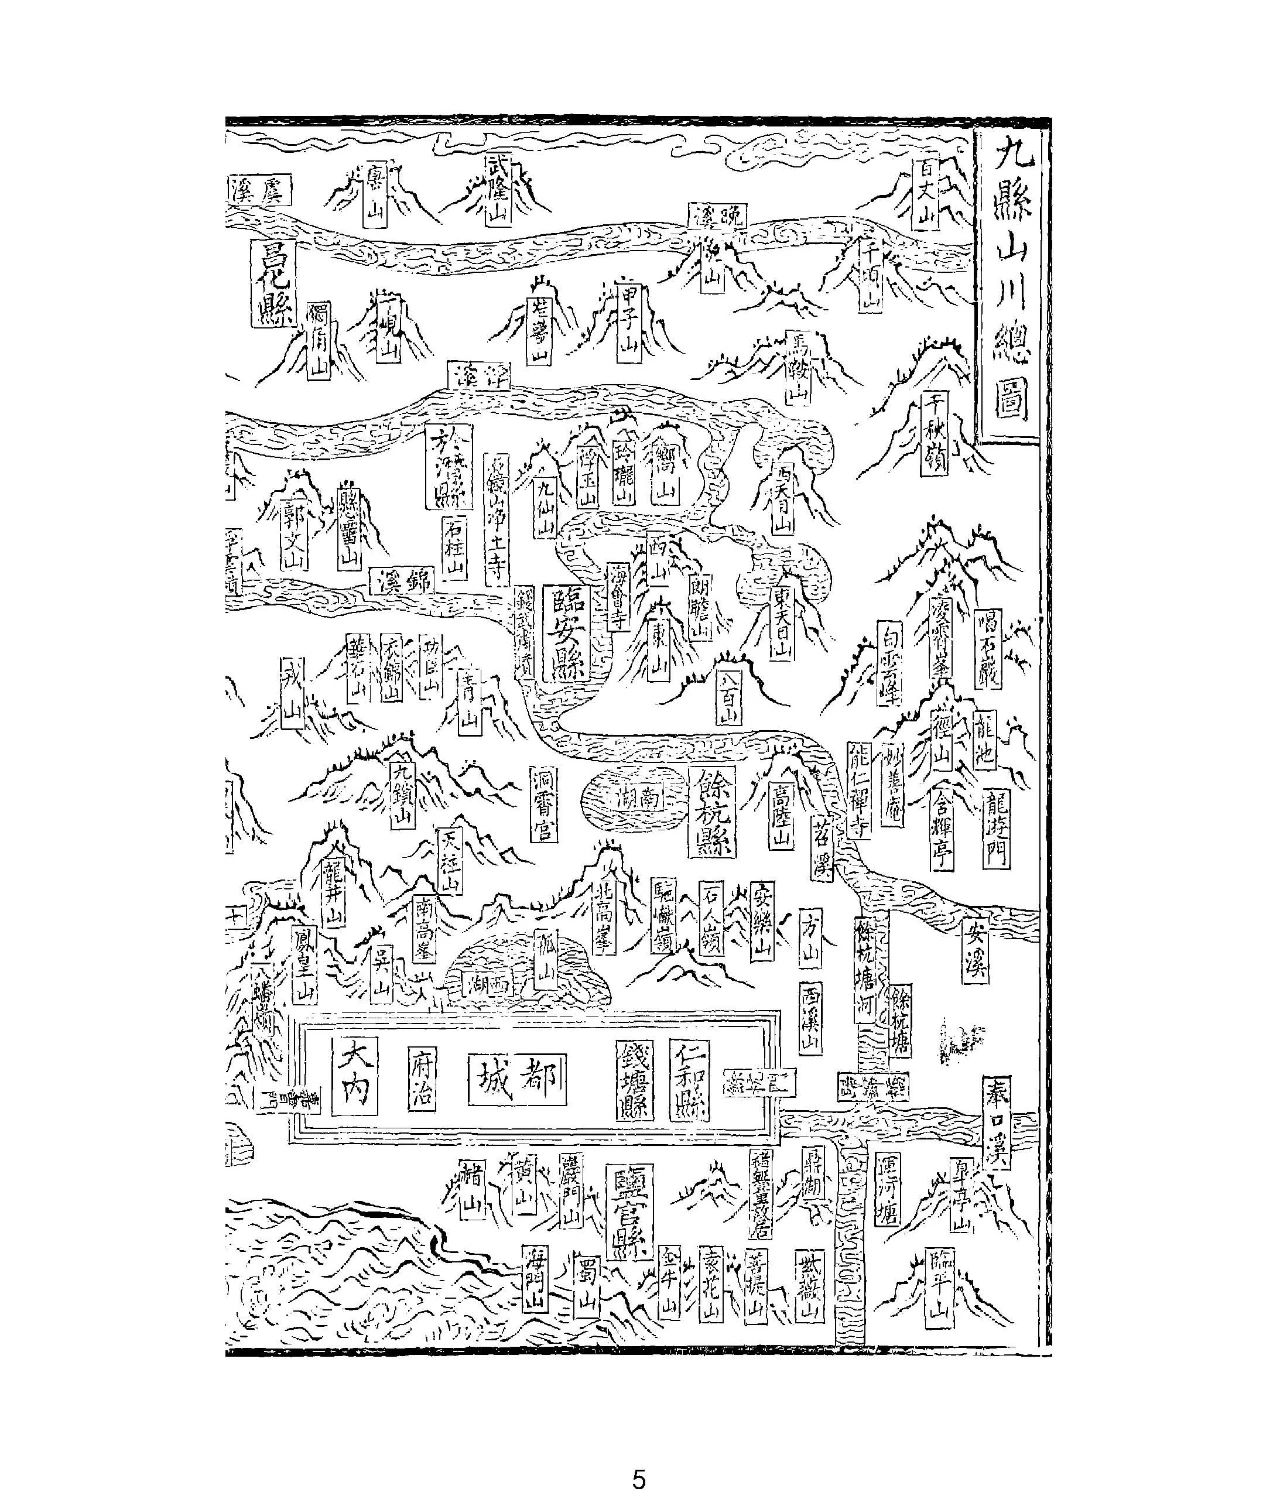 九縣山川總圖
百丈山
千頃山
晚溪
武隆山
唐山
虞溪
昌化縣
獨角山
甲子山
馬鞍山
千秋嶺
浮溪
於潛縣
淨土寺
石柱山
九仙山
浮玉山
玲瓏山
西天目山
郭文山
錦溪
臨安縣
海會寺
西山
東山
東天目山
凌霄峯
唱石巖
白雲峰
衣錦山
功臣山
青山
戎山
八百山
徑山
龍池
妙善庵
能仁禪寺
含輝亭
龍遊門
九鎖山
洞霄宮
南湖
餘杭縣
高陸山
苕溪
天柱山
龍井山
南高峯
北高峯
石人嶺
安樂山
方山
餘杭塘河
安溪
鳳皇山
吳山
西湖
孤山
西溪山
餘杭塘
大內
府治
都城
錢塘縣
仁和縣
奉口溪
赭山
黃山
巖門山
鹽官縣
鼎湖
運河塘
皐亭山
海門山
蜀山
金牛山
袁花山
菩提山
紫薇山
臨平山
5